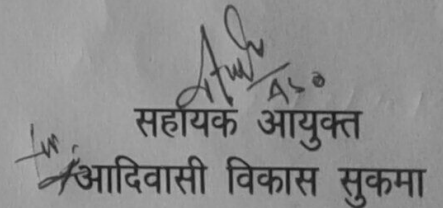 ASO
सहायक आयुक्त
आदिवासी विकास सुकमा